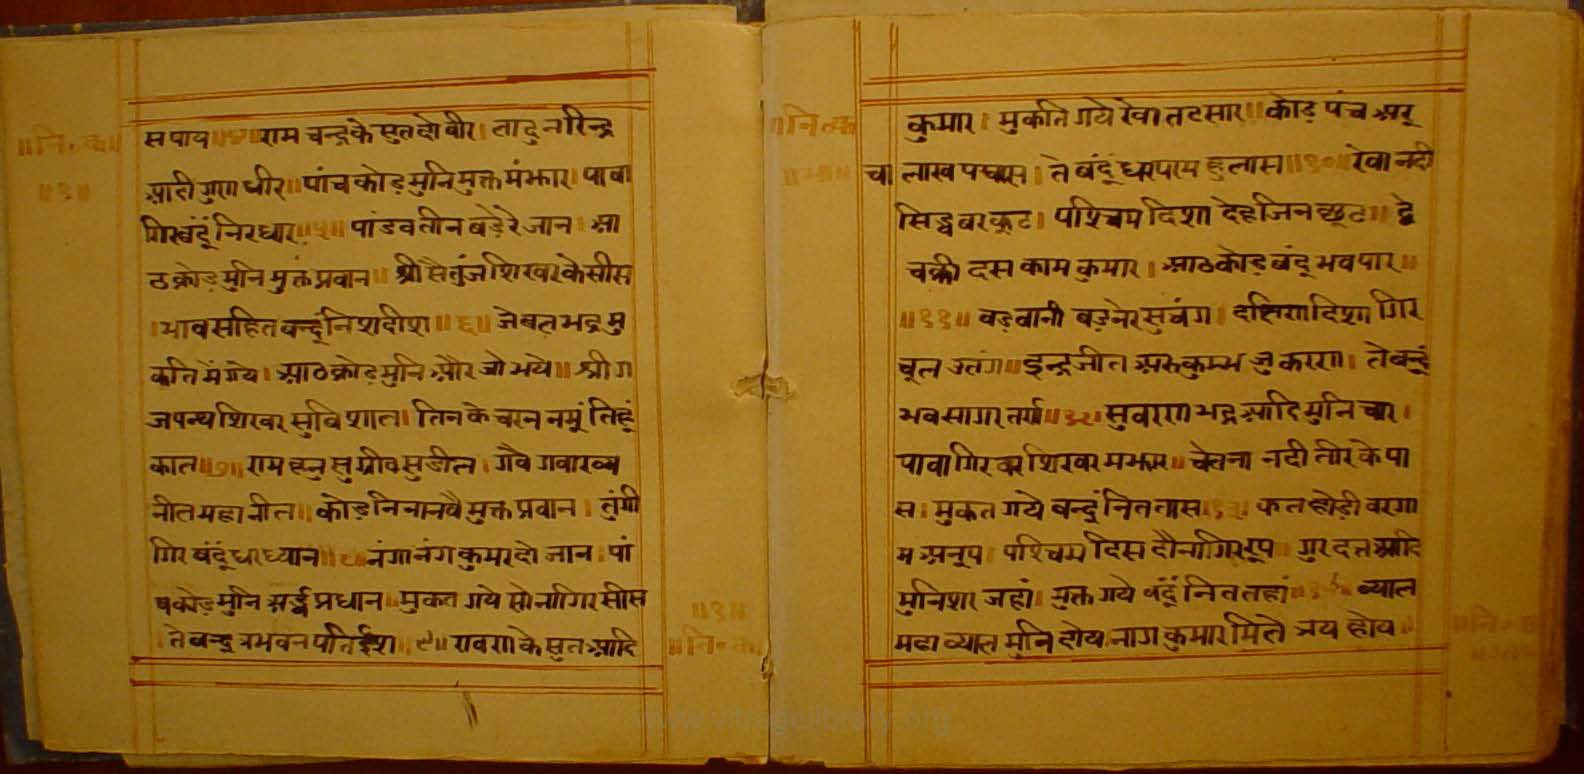 ॥नि॰का॥
॥१॥
स पाय॥४॥राम चन्द्र के सुत दो वीर। लाडु नरिन्द्र
आदी गुण धीर॥पांच कोड़ मुनि मुक्त मंझार। पावा
गिर बंदूं निरधार॥५॥ पांडव तीन बड़े रे जान। आ
ठ क्रोड़ मुनि मुक्त प्रवान॥ श्री सैतुंज शिखर के सीस
।भाव सहित बन्दूं निश दीश॥६॥ जे बल भद्र मु
कति में गये। आठ क्रोड़ मुनि और जो भये॥ श्री ग
ज पन्थ शिखर सुवि शाल। तिन के चरन नमूं तिहूं
काल॥७॥ राम हनु सुग्रीव सुडील। गवै गवाख्य
नील महा नील॥ कोड़ निनानवै मुक्त प्रवान। तुंगी
गिर बंदूं धर ध्यान॥८॥ नंगा नंग कुमर दो जान। पां
च कोड़ मुनि अर्द्ध प्रधान॥ मुकत गये सोनागिर सीस
। ते बन्दु त्रभवन पति ईश॥९॥ रावण के सुत आदि
॥१॥
॥नि॰का॥
॥नि॰का
कुमार। मुकति गये रेवा तट सार॥ कोड़ पंच अर्
चा लाख पचास। ते बंदूं धर परम हुलास॥१०॥ रेवा नदी
सिद्ध वर कूट। पश्चिम दिशा देह जिन छूट॥ द्वे
चक्री दस काम कुमार। आठ कोड़ बंदूं भव पार॥
॥११॥ बड़वानी बड़ नेर सुचंग। दक्षिण दिश गिर
चूल उतंग॥ इन्द्र जीत अरु कुम्भ जु करण। ते बन्दूं
भव सागर तर्ण॥१२॥ सुवरण भद्र आदि मुनि चार।
पावा गिर वर शिखर मझार॥ चेलना नदी तीर के पा
स। मुकत गये बन्दूं नित तास॥१३॥ फल होड़ी वर गा
म अनूप। पश्चिम दिस दौनागिर रूप॥ गुर दत्त आदि
मुनिशर जहां। मुक्त गये बंदूं नित तहां॥१४॥ व्याल
महा व्याल मुनि दोय। नाग कुमार मिले त्रय होय॥
॥नि॰का